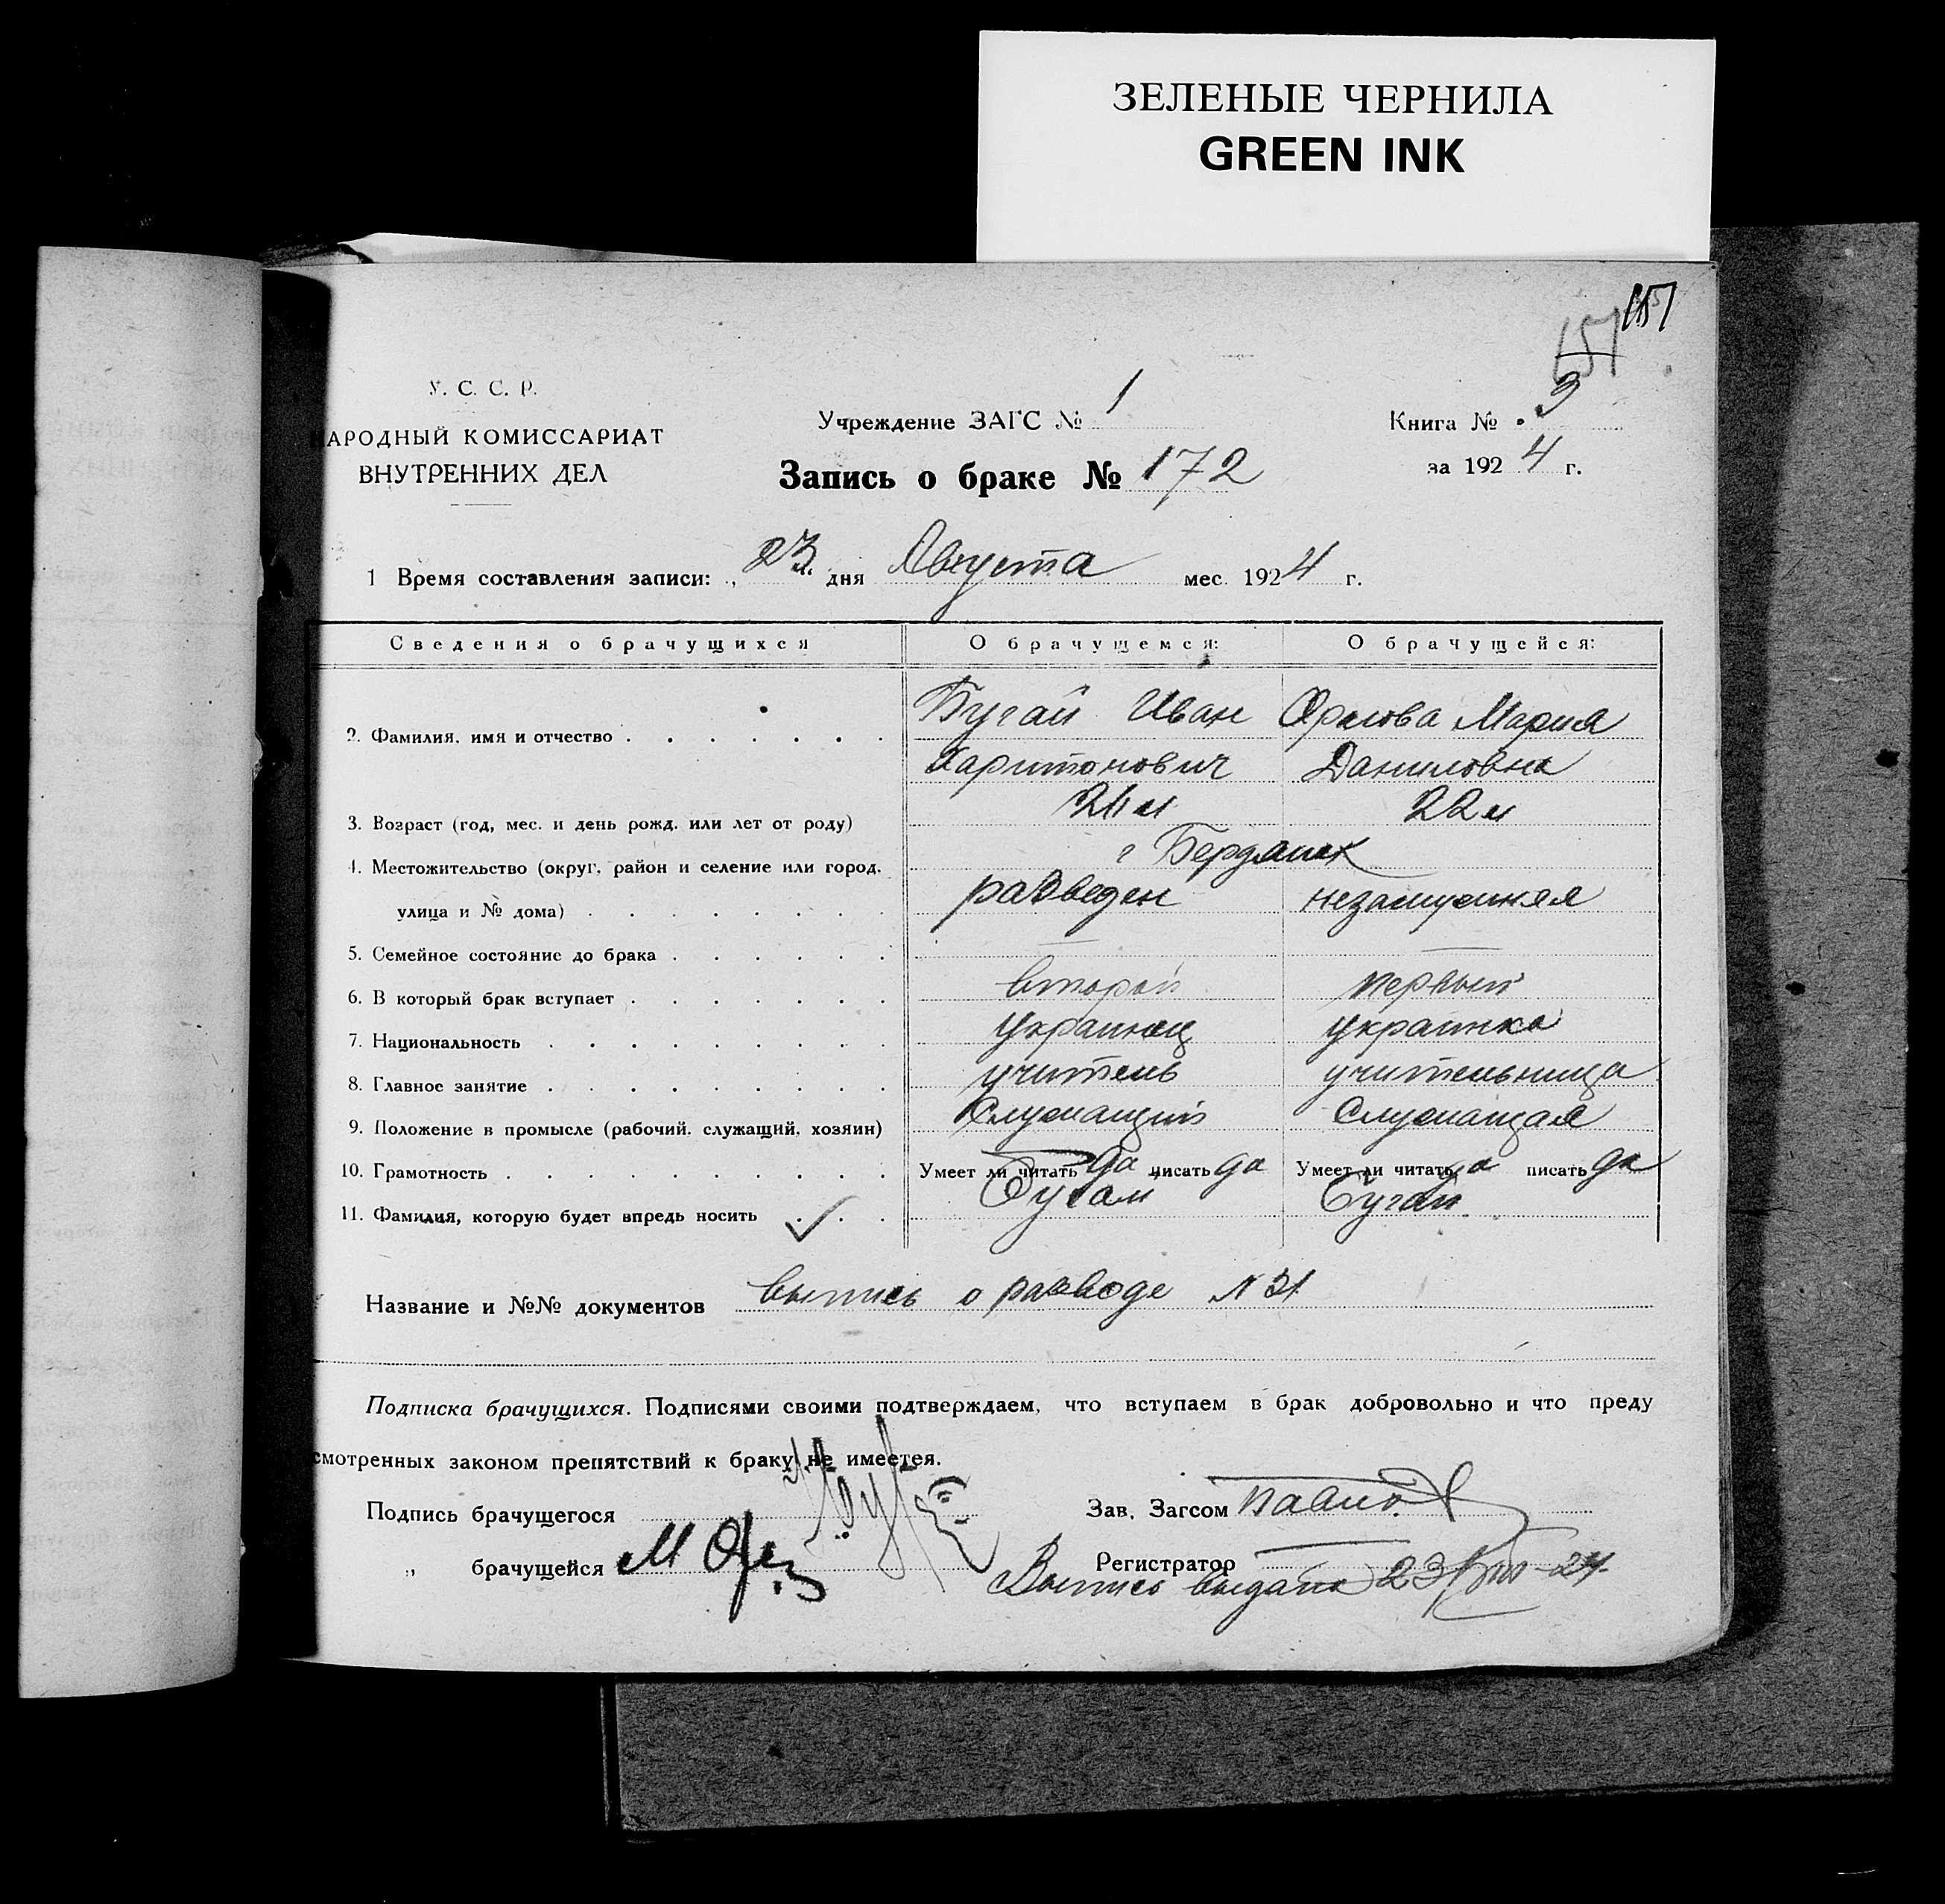 ЗЕЛЕНЫЕ ЧЕРНИЛА
GREEN INK
151
151
У. С. С. Р.
НАРОДНЫЙ КОМИССАРИАТ
ВНУТРЕННИХ ДЕЛ
Учреждение ЗАГС № 1
Книга № 3
Запись о браке № 172
за 1924 г.
1 Время составления записи: „23“ дня Августа мес. 1924 г.
Сведения о брачущихся О брачущемся: О брачущейся:
2. Фамилия, имя и отчество Бугай Иван Харитонович Орлова Мария Даниловна
3. Возраст (год, мес. и день рожд. или лет от роду) 22 л
4. Местожительство (округ, район и селение или город, улица и № дома) г Бердянск
разведен незамужняя
5. Семейное состояние до брака
6. В который брак вступает второй первый
7. Национальность украинец украинка
8. Главное занятие учитель учительница
9. Положение в промысле (рабочий, служащий, хозяин) Служащий Служащая
10. Грамотность Умеет ли читать да писать да Умеет ли читать да писать да
11. Фамилия, которую будет впредь носить Бугай Бугай
Название и №№ документов выпись о разводе N 31
Подписка брачущихся. Подписями своими подтверждаем, что вступаем в брак добровольно и что преду
смотренных законом препятствий к браку не имеется.
Подпись брачущегося
Зав. Загсом
„ брачущейся М Ор
Регистратор
Выпись выдана 23/VIII-24